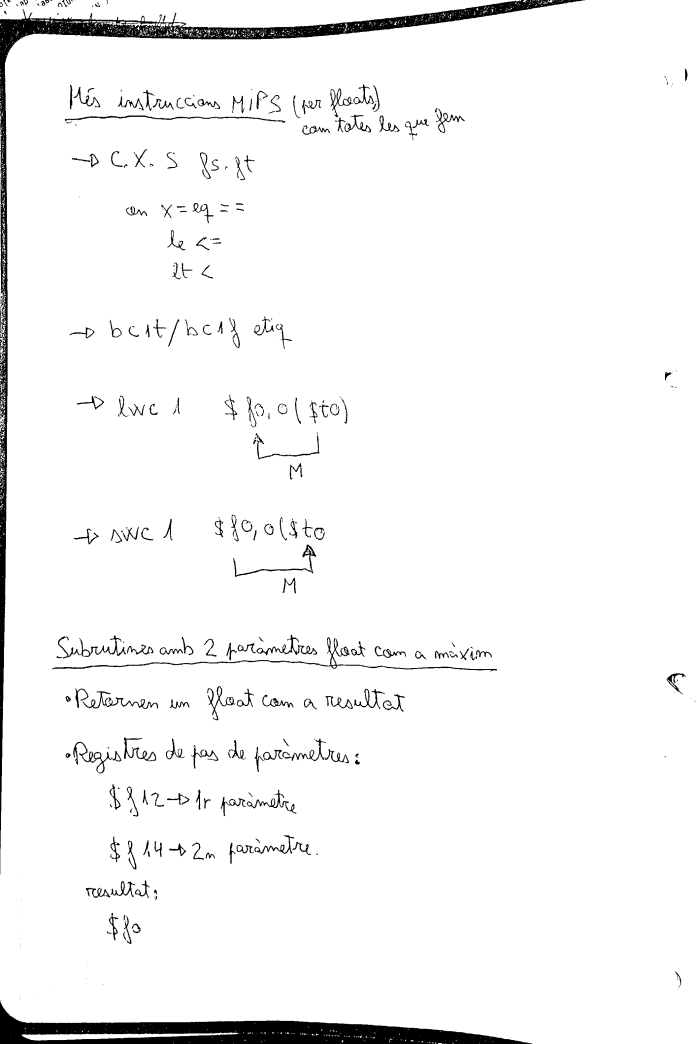 Més instruccions MIPS (per floats,)
com totes les que fem
→ C.X.S fs.ft
on x = eq ==
le <=
lt <
→ bc1t/bc1f etiq
→ lwc 1 $f0, 0($t0)
M
→ swc 1 $f0, 0($t0
M
Subrutines amb 2 paràmetres float com a màxim
• Retornen un float com a resultat
• Registres de pas de paràmetres:
$f12 → 1r paràmetre
$f14 → 2n paràmetre.
resultat:
$f0